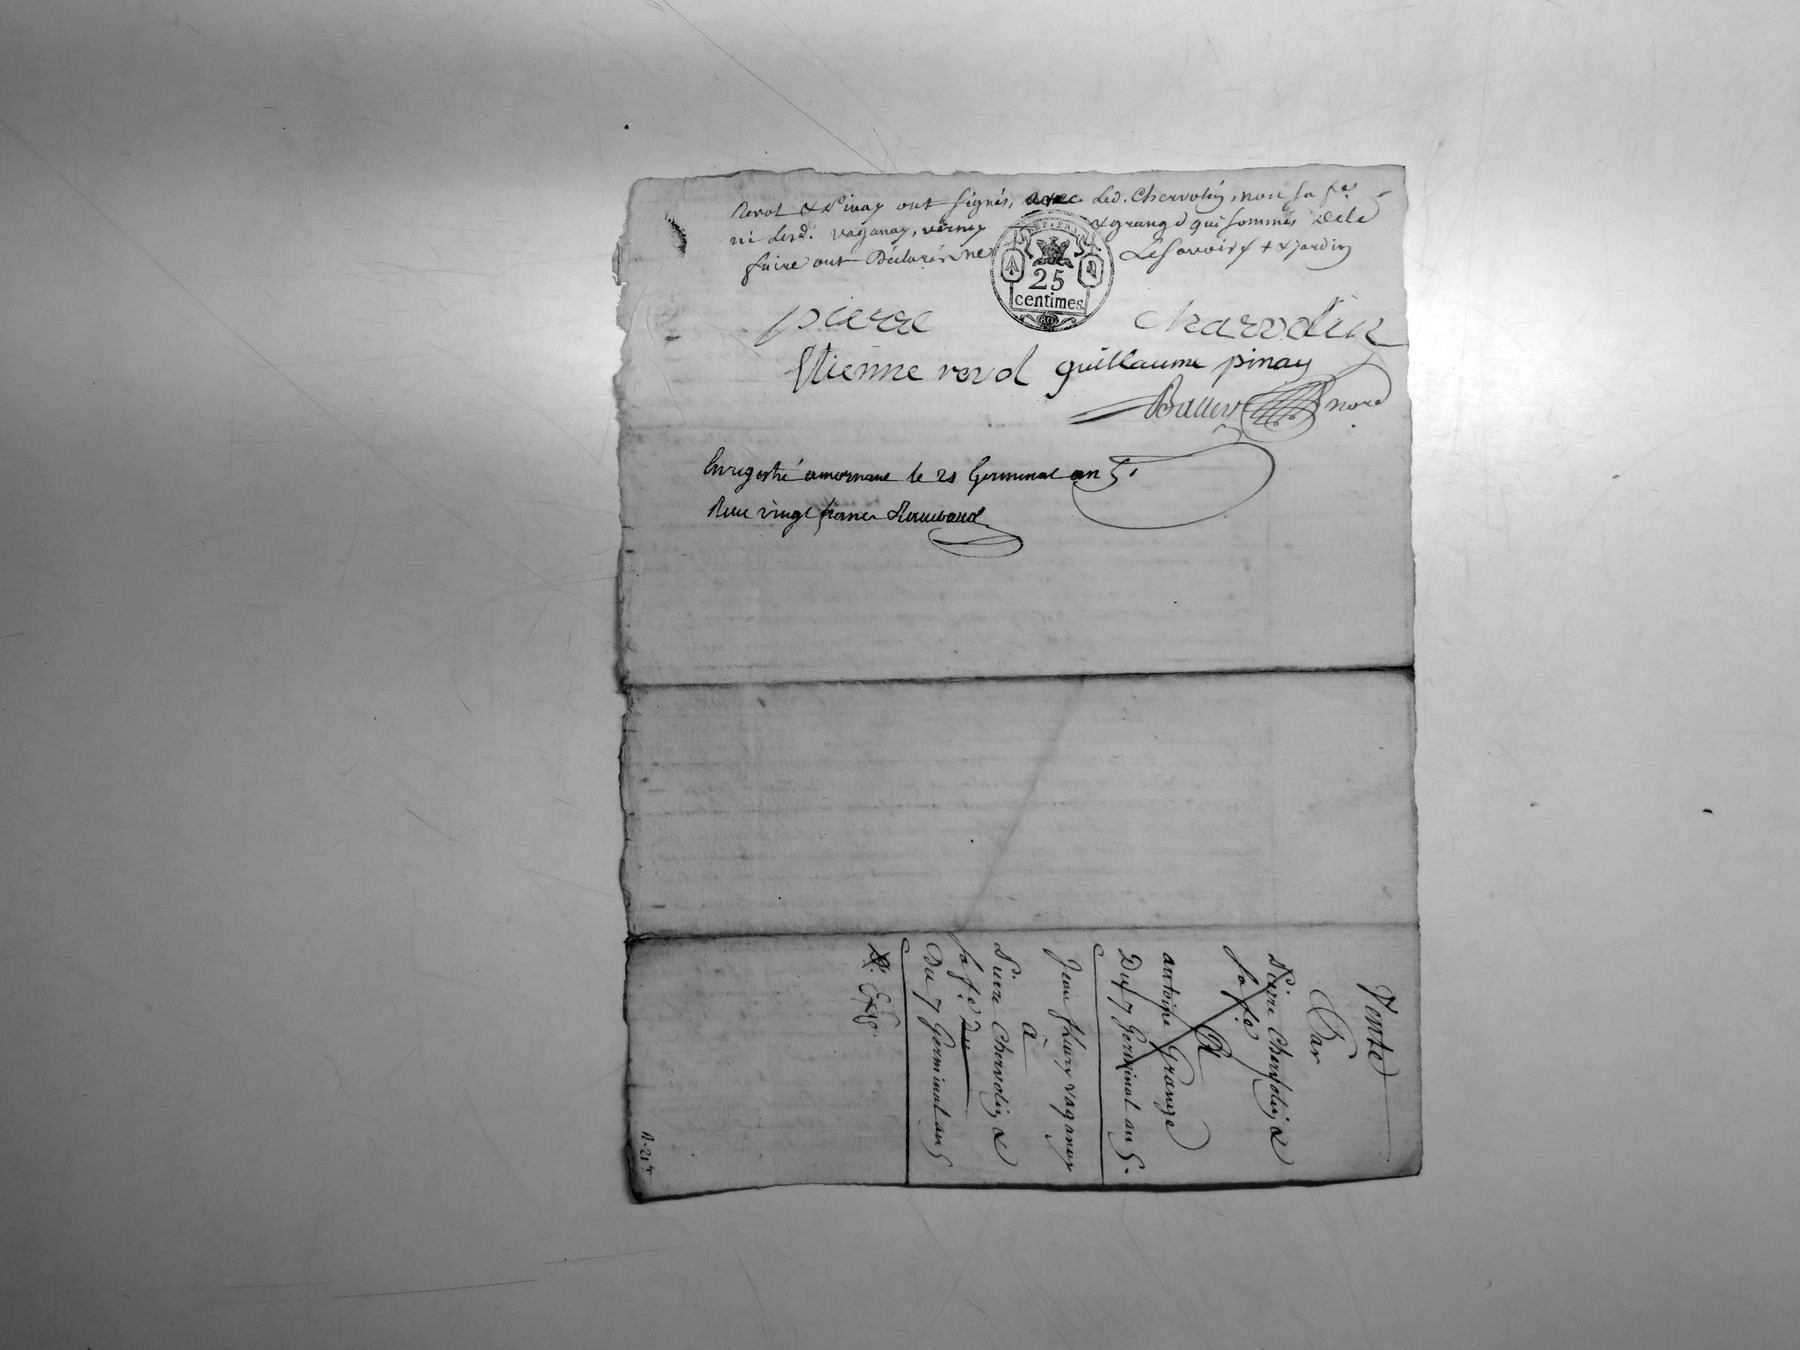 Revol & Pinay ont signés, avec Led. Chervolin, non sa fe.
ni lesd. vaganay, verney & grange qui sommés de le
faire ont Déclarés ne Le Savoir / + & jardin
REP. FRA.
25
centimes.
pierre charvolin
Etienne revol guillaume pinay
Ballet nore
Enregistré a mornant le 21 Germinal an 5.
Reçu vingt francs
Vente
Par
Pierre Chervolin &
sa fe.
a
antoine Grange
Du 7 Germinal an 5.
Jean fleury vaganay
a
Pierre Chervolin &
sa fe. Du
Du 7 Germinal an 5
Exp.